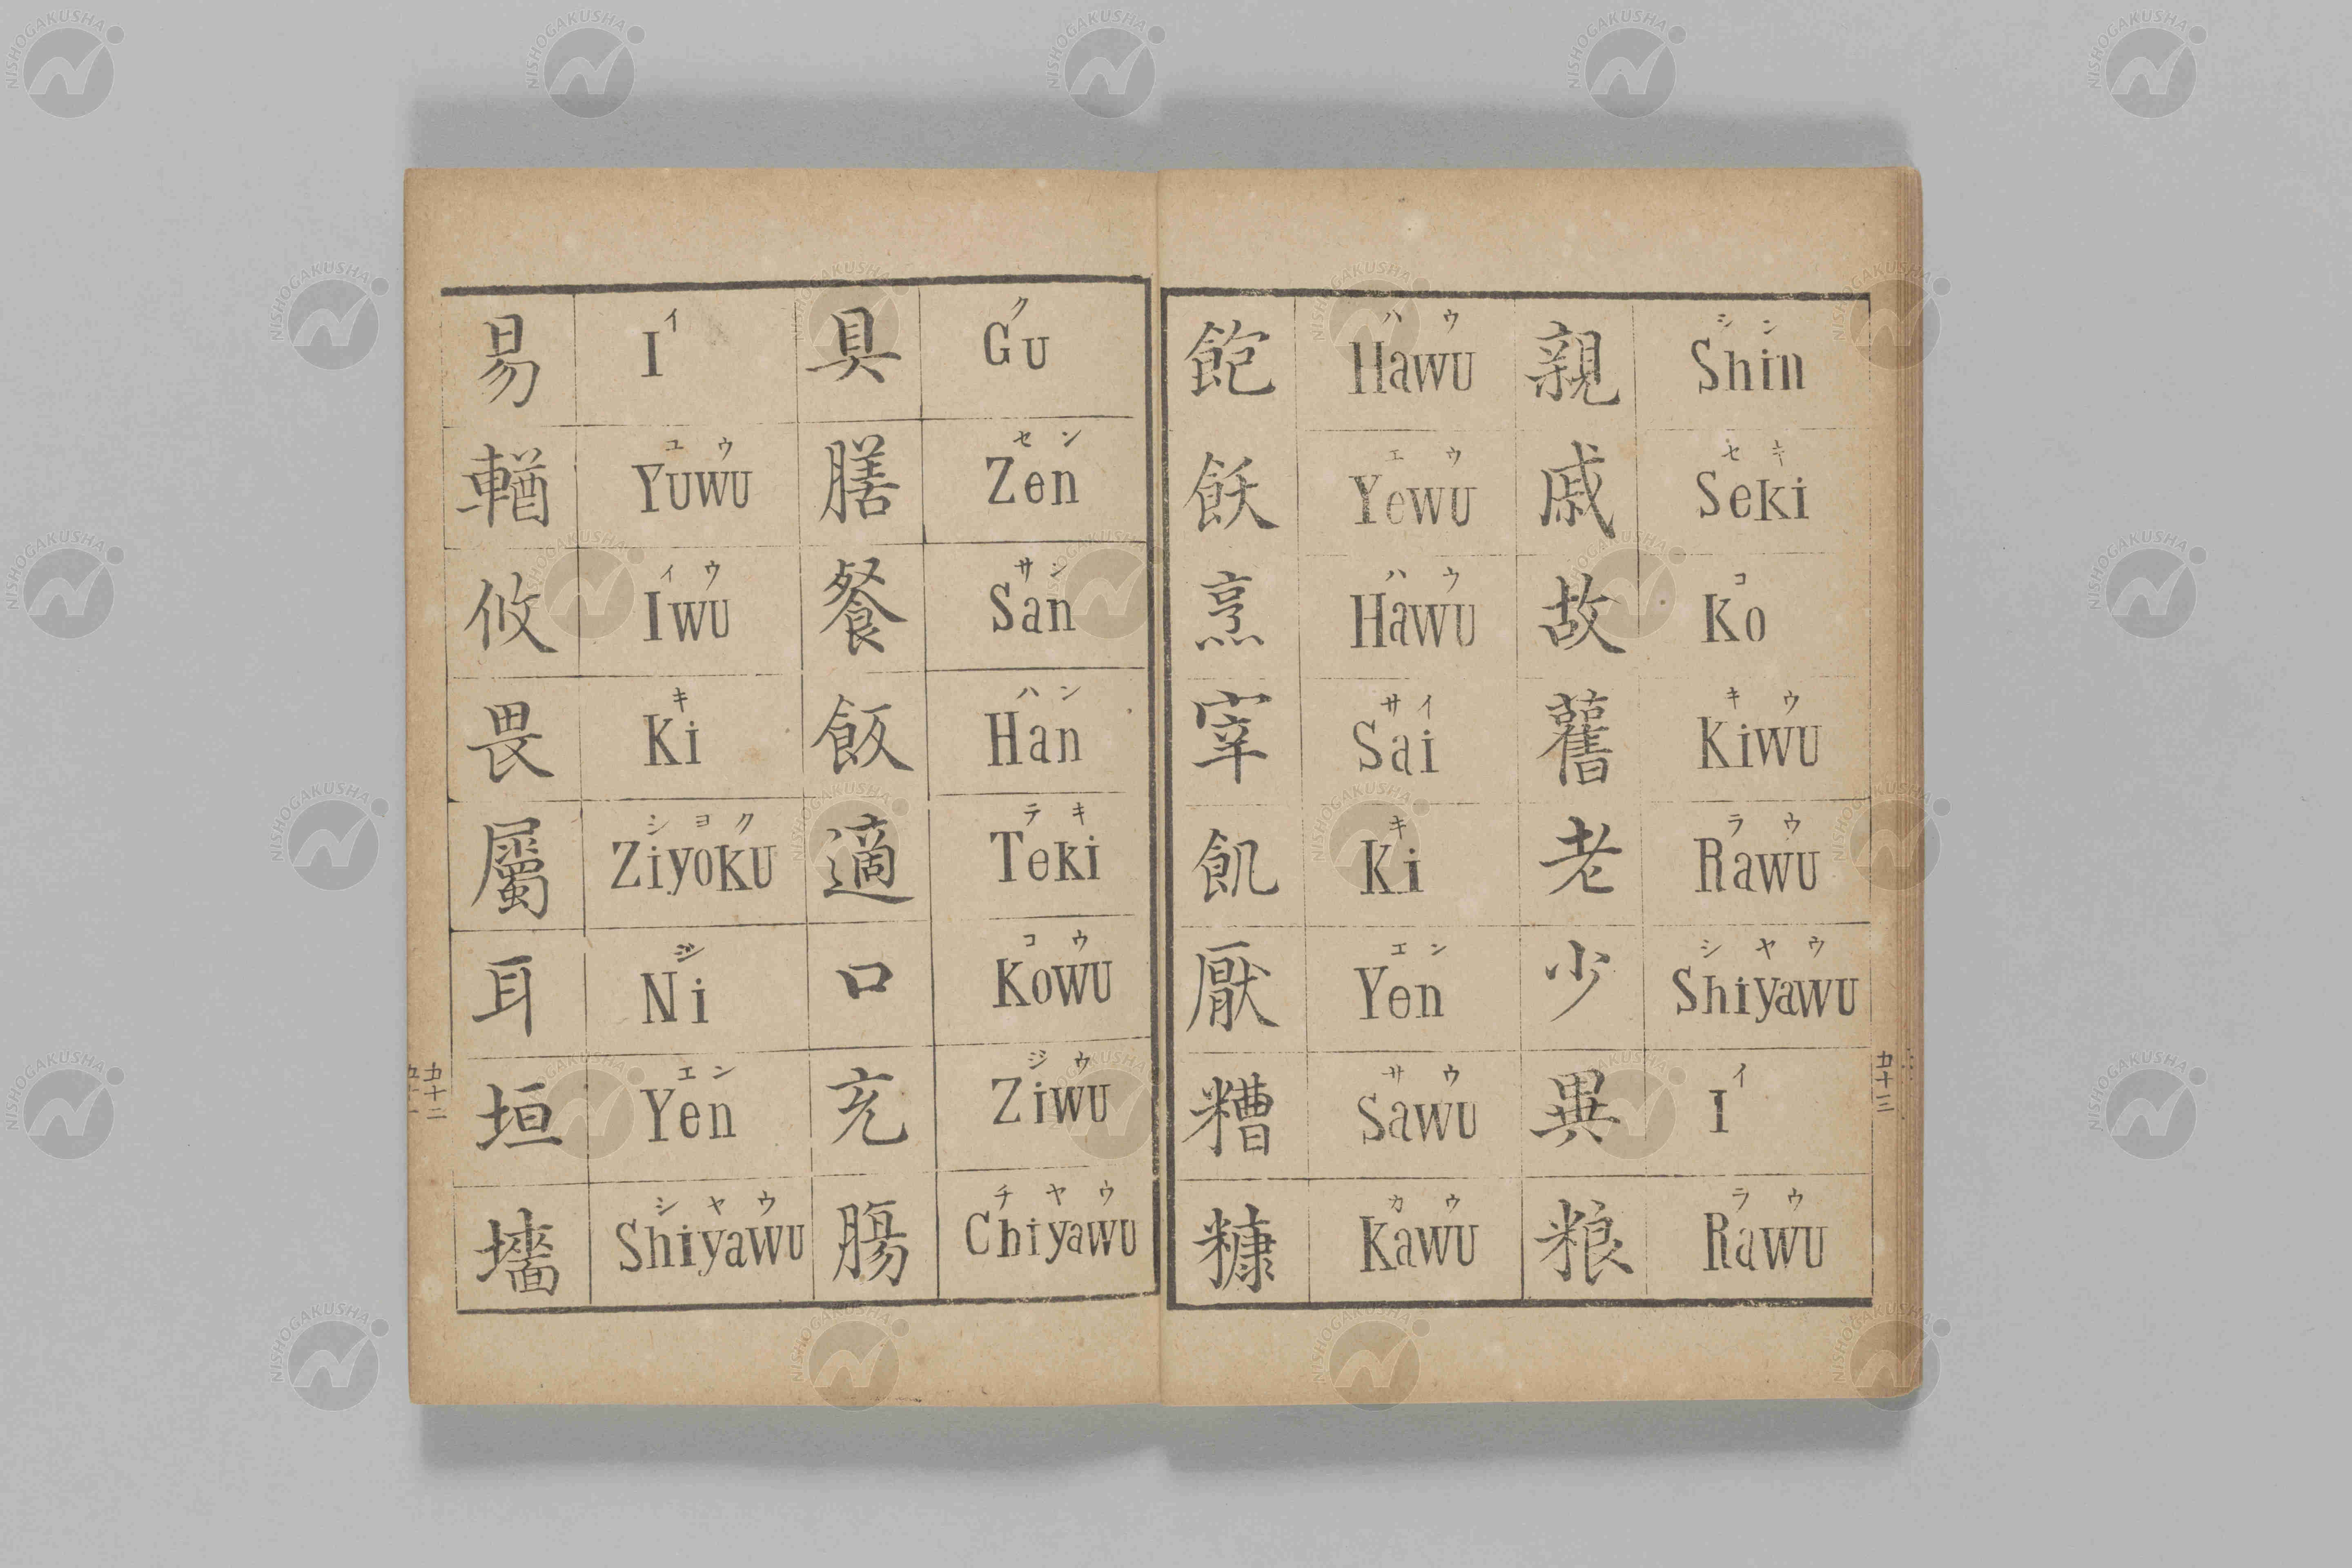 易 イ I
輶 ユウ Yuwu
攸 イウ Iwu
畏 キ Ki
屬 シヨク Ziyoku
耳 ジ Ni
垣 エン Yen
墻 シヤウ Shiyawu
具 ク Gu
膳 セン Zen
餐 サン San
飯 ハン Han
適 テキ Teki
口 コウ Kowu
充 ジウ Ziwu
腸 チヤウ Chiyawu
五十二
飽 ハウ Hawu
飫 エウ Yewu
烹 ハウ Hawu
宰 サイ Sai
飢 キ Ki
厭 エン Yen
糟 サウ Sawu
糠 カウ Kawu
親 シン Shin
戚 セキ Seki
故 コ Ko
舊 キウ Kiwu
老 ラウ Rawu
少 シヤウ Shiyawu
異 イ I
粮 ラウ Rawu
五十三
NISHOGAKUSHA